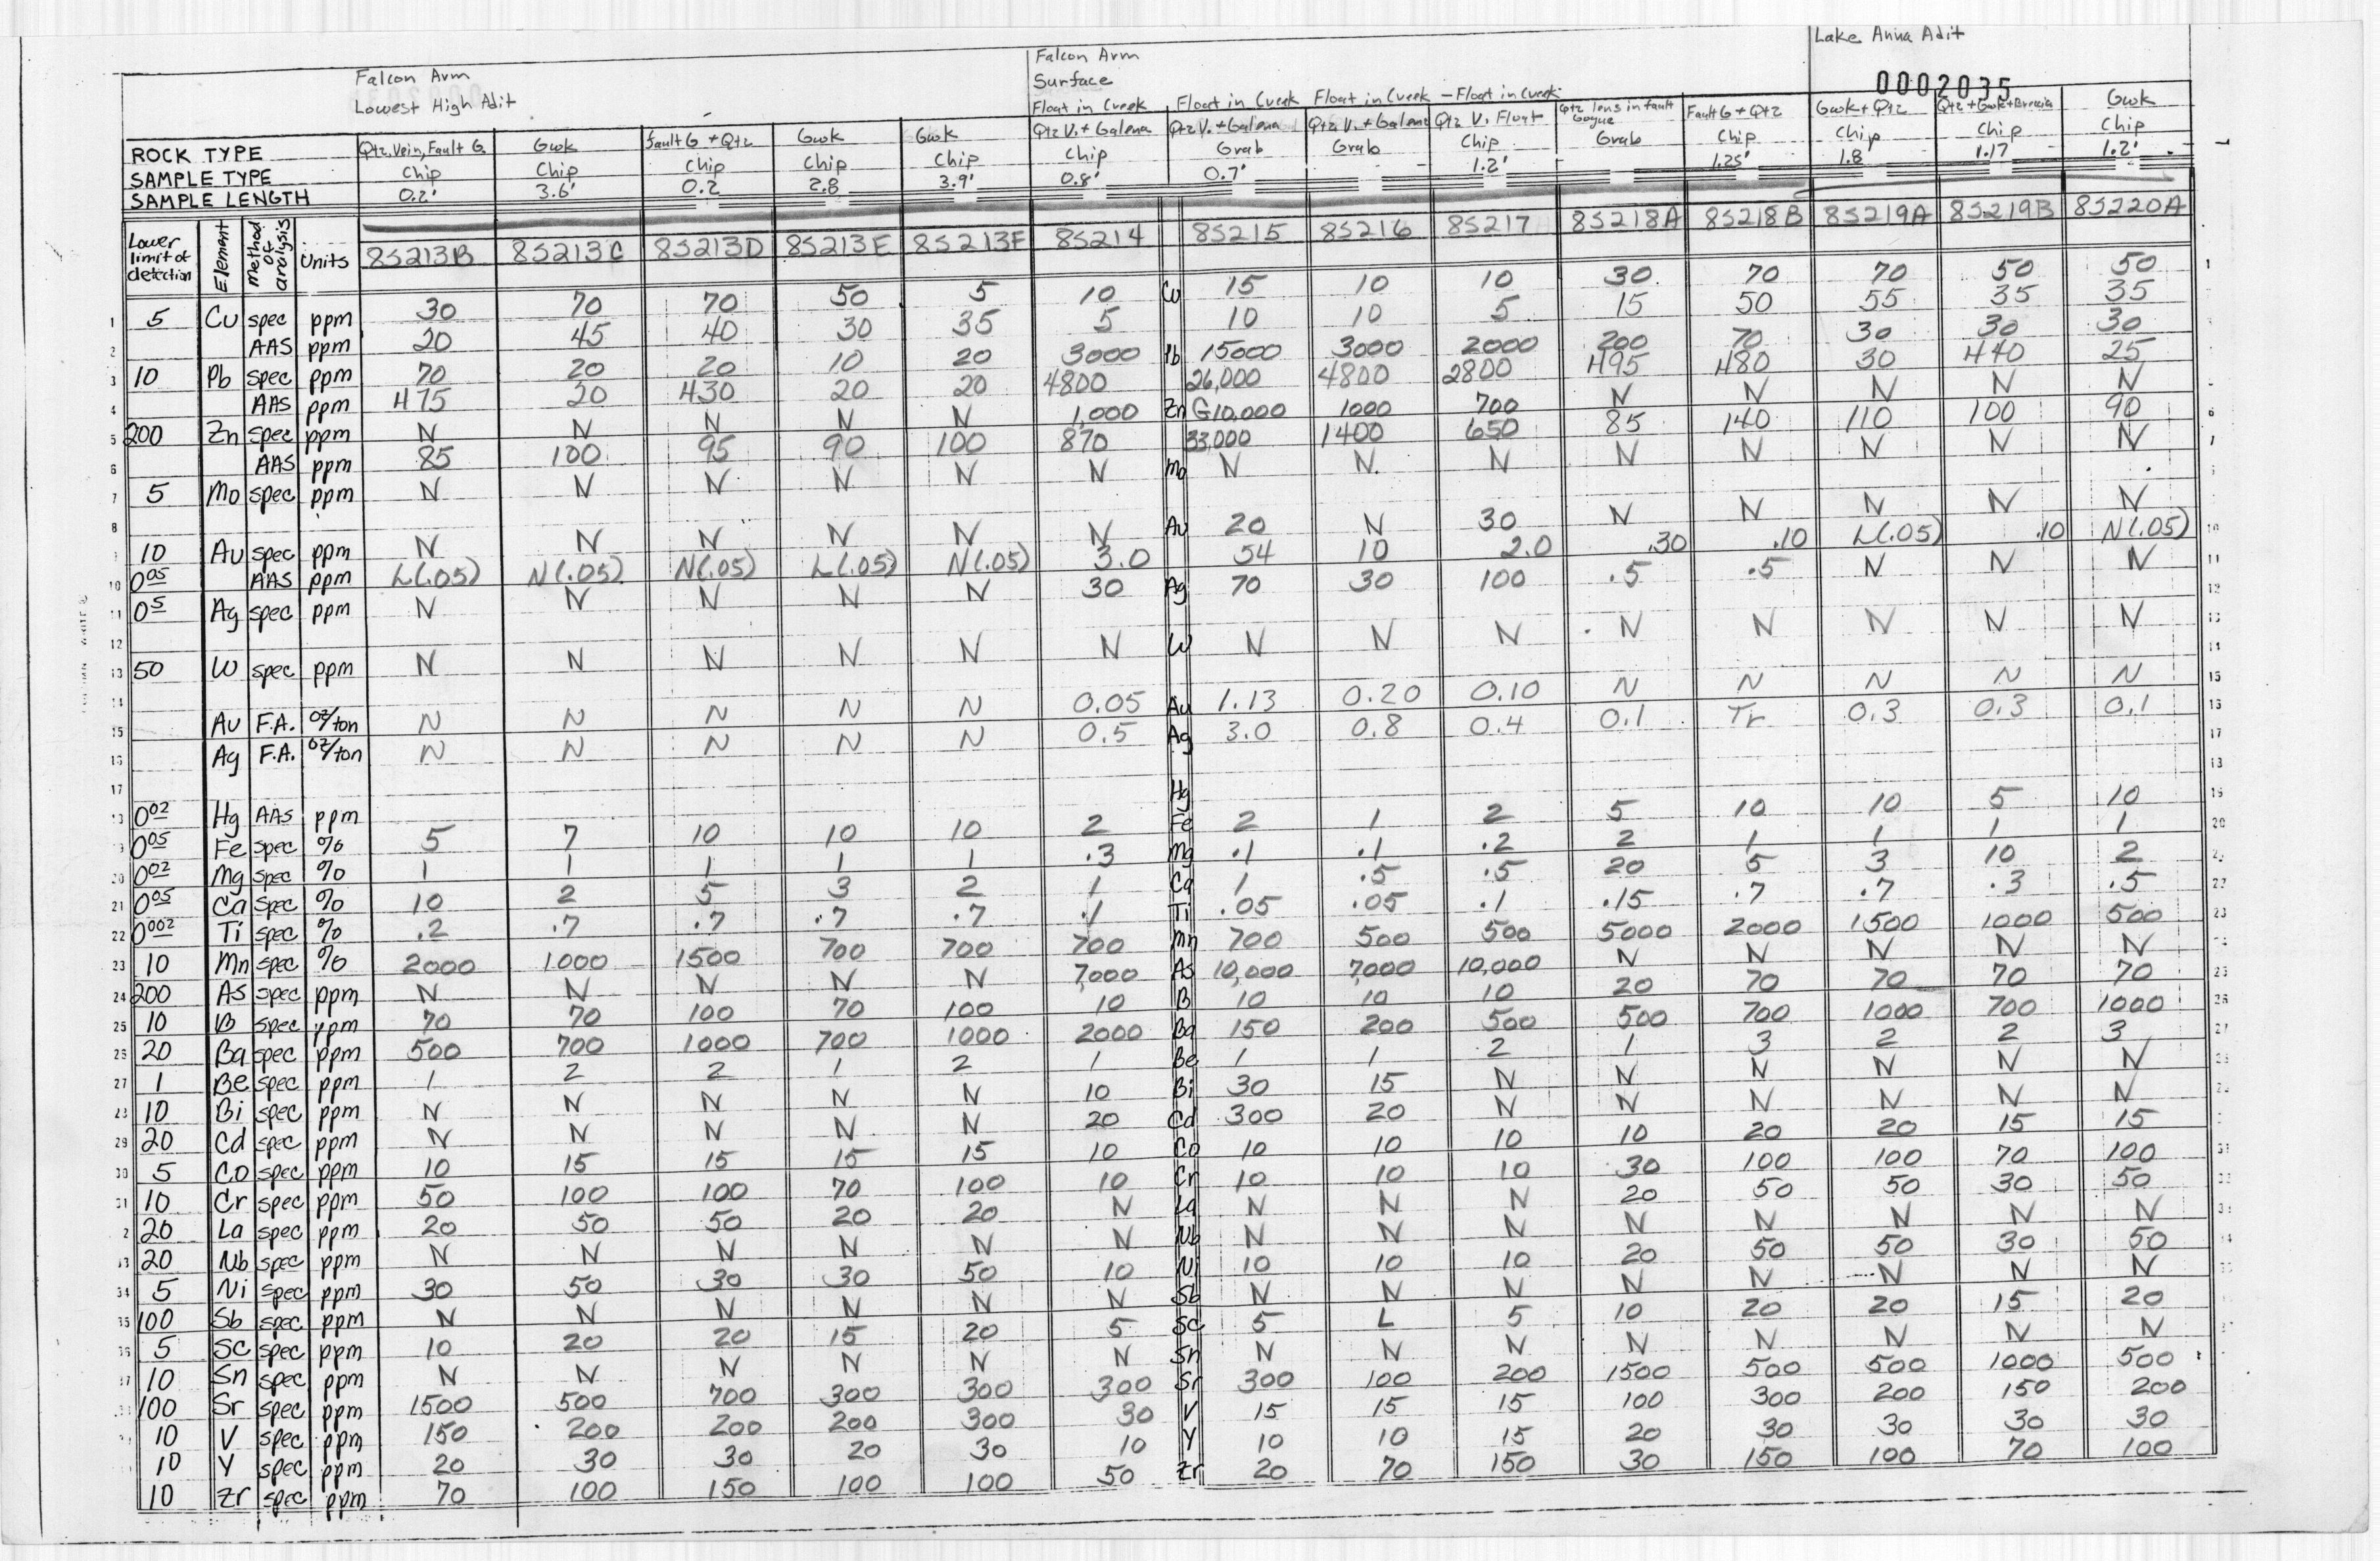 Lake Anna Adit
Falcon Arm
Surface
Falcon Arm
Lowest High Adit
0002035
Float in Creek Float in Creek Float in Creek - Float in Creek Qtz lens in fault Gouge Fault G + Qtz Gwk + Qtz Qtz + Gwk + Breccia Gwk
ROCK TYPE Qtz. Vein, Fault G. Gwk fault G + Qtz Gwk Gwk Qtz V. + Galena Qtz V. + Galena Qtz V. + Galena Qtz V. Float
SAMPLE TYPE Chip Chip Chip Chip Chip Chip Grab Grab Chip Grab Chip Chip Chip Chip
SAMPLE LENGTH 0.2' 3.6' 0.2 2.8 3.9' 0.8' 0.7' 1.2' 1.25' 1.8 1.17' 1.2'
Lower limit of detection Element Method of analysis Units 8S213B 8S213C 8S213D 8S213E 8S213F 8S214 8S215 8S216 8S217 8S218A 8S218B 8S219A 8S219B 8S220A
1 5 Cu spec ppm 30 70 70 50 5 10 Cu 15 10 10 30 70 70 50 50
2 AAS ppm 20 45 40 30 35 5 10 10 5 15 50 55 35 35
3 10 Pb spec ppm 70 20 20 10 20 3000 Pb 15000 3000 2000 200 70 30 30 30
4 AAS ppm H75 20 H30 20 20 4800 26,000 4800 2800 H95 H80 30 H40 25
5 200 Zn spec ppm N N N N N 1,000 Zn G10,000 1000 700 N N N N N
6 AAS ppm 85 100 95 90 100 870 33,000 1400 650 85 140 110 100 90
7 5 Mo spec ppm N N N N N N Mo N N N N N N N N
8
9 10 Au spec ppm N N N N N N Au 20 N 30 N N N N N
10 0.05 AAS ppm L(.05) N(.05) N(.05) L(.05) N(.05) 3.0 54 10 2.0 .30 .10 L(.05) .10 N(.05)
11 0.5 Ag spec ppm N N N N N 30 Ag 70 30 100 .5 .5 N N N
12
13 50 W spec ppm N N N N N N W N N N N N N N N
14
15 Au F.A. oz/ton N N N N N 0.05 Au 1.13 0.20 0.10 N N N N N
16 Ag F.A. oz/ton N N N N N 0.5 Ag 3.0 0.8 0.4 0.1 Tr 0.3 0.3 0.1
17
18 0.02 Hg AAS ppm Hg
19 0.05 Fe spec % 5 7 10 10 10 2 Fe 2 1 2 5 10 10 5 10
20 0.02 Mg spec % 1 1 1 1 1 .3 Mg .1 .1 .2 2 1 1 1 1
21 0.05 Ca spec % 10 2 5 3 2 1 Ca 1 .5 .5 20 5 3 10 2
22 0.002 Ti spec % .2 .7 .7 .7 .7 .1 Ti .05 .05 .1 .15 .7 .7 .3 .5
23 10 Mn spec % 2000 1000 1500 700 700 700 Mn 700 500 500 5000 2000 1500 1000 500
24 200 As spec ppm N N N N N 7000 As 10,000 7000 10,000 N N N N N
25 10 B spec ppm 70 70 100 70 100 10 B 10 10 10 20 70 70 70 70
26 20 Ba spec ppm 500 700 1000 700 1000 2000 Ba 150 200 500 500 700 1000 700 1000
27 1 Be spec ppm 1 2 2 1 2 1 Be 1 1 2 1 3 2 2 3
28 10 Bi spec ppm N N N N N 10 Bi 30 15 N N N N N N
29 20 Cd spec ppm N N N N N 20 Cd 300 20 N N N N N N
30 5 Co spec ppm 10 15 15 15 15 10 Co 10 10 10 10 20 20 15 15
31 10 Cr spec ppm 50 100 100 70 100 10 Cr 10 10 10 30 100 100 70 100
20 La spec ppm 20 50 50 20 20 N La N N N 20 50 50 30 50
33 20 Nb spec ppm N N N N N N Nb N N N N N N N N
34 5 Ni spec ppm 30 50 30 30 50 10 Ni 10 10 10 20 50 50 30 50
35 100 Sb spec ppm N N N N N N Sb N N N N N N N N
36 5 Sc spec ppm 10 20 20 15 20 5 Sc 5 L 5 10 20 20 15 20
10 Sn spec ppm N N N N N N Sn N N N N N N N N
100 Sr spec ppm 1500 500 700 300 300 300 Sr 300 100 200 1500 500 500 1000 500
10 V spec ppm 150 200 200 200 300 30 V 15 15 15 100 300 200 150 200
10 Y spec ppm 20 30 30 20 30 10 Y 10 10 15 20 30 30 30 30
10 Zr spec ppm 70 100 150 100 100 50 Zr 20 70 150 30 150 100 70 100